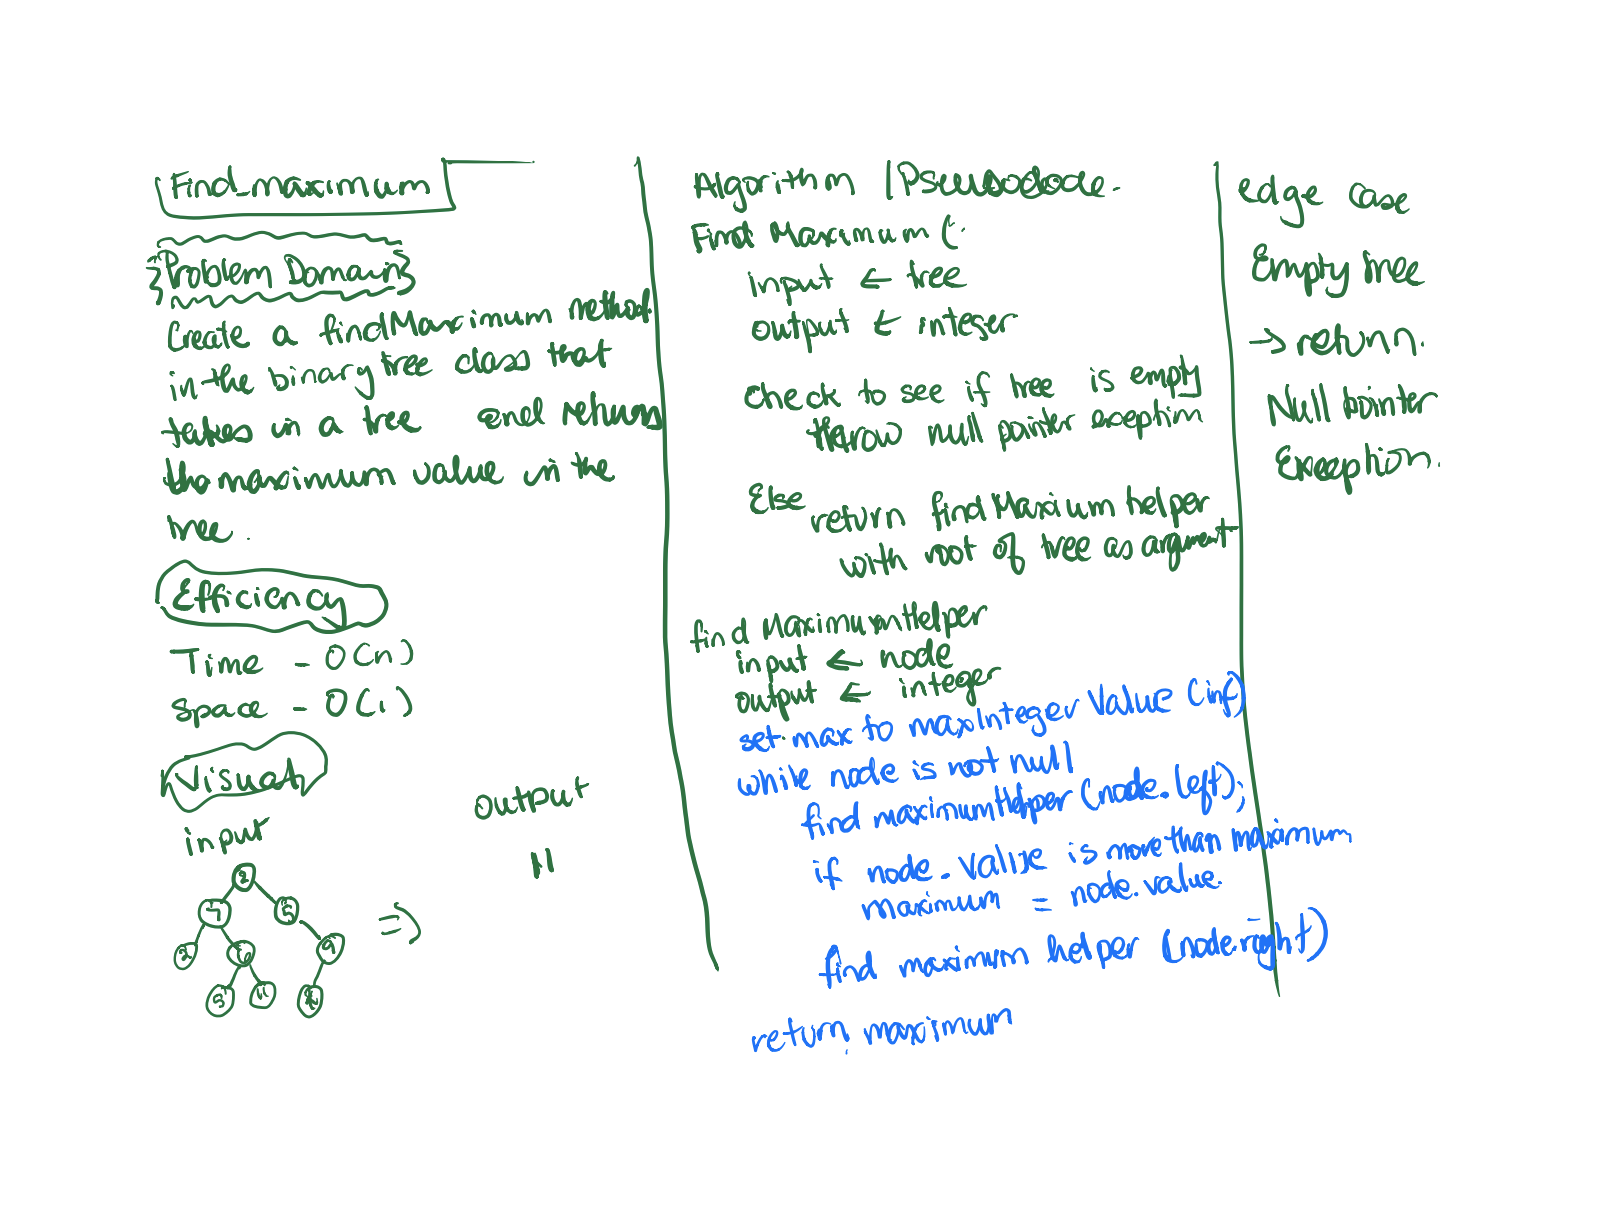 Find_maximum
Problem Domain
Create a findMaximum method
in the binary tree class that
takes in a tree and returns
the maximum value in the
tree.
Efficiency
Time - O(n)
Space - O(1)
Visual
input
output
2
7 5
2 6 9
5 11 4
⇒
11
Algorithm / Pseudodode.
Find Maximum (
input ← tree
output ← integer
Check to see if tree is empty
throw null pointer exception
Else
return find Maxium helper
with root of tree as argument
find MaximumHelper
input ← node
output ← integer
set max to max Integer Value (inf)
while node is not null
find maximumHelper (node.left);
if node.value is more than maximum
maximum = node.value.
find maximum helper (node.right)
return maximum
edge case
Empty tree
→ return.
Null pointer
Exception.